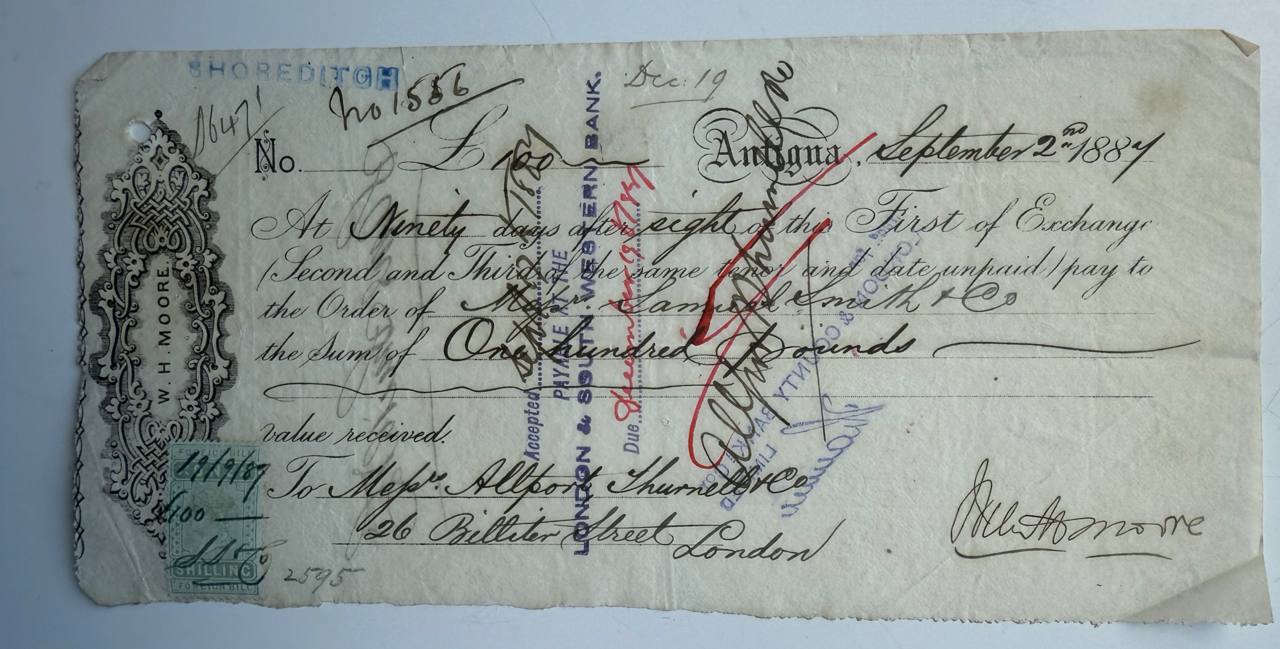 SHOREDITCH
No 1556
Dec. 19
No. £ 100 Antigua, September 2nd 1887
At Ninety days after sight of this First of Exchange
(Second and Third of the same tenor and date unpaid) pay to
the Order of Messrs. Samuel Smith & Co
the Sum of One hundred Pounds
value received.
To Messrs. Allport Thurnell & Co
26 Billiter Street London
W. H. MOORE.
19/9/87
100
SHILLING
FOREIGN BILL
2595
Accepted 1887
PAYABLE AT THE
LONDON & SOUTH WESTERN BANK.
Due December 19 1887
Allport Thurnell & Co
LONDON & COUNTY BANK LIMITED
Moore